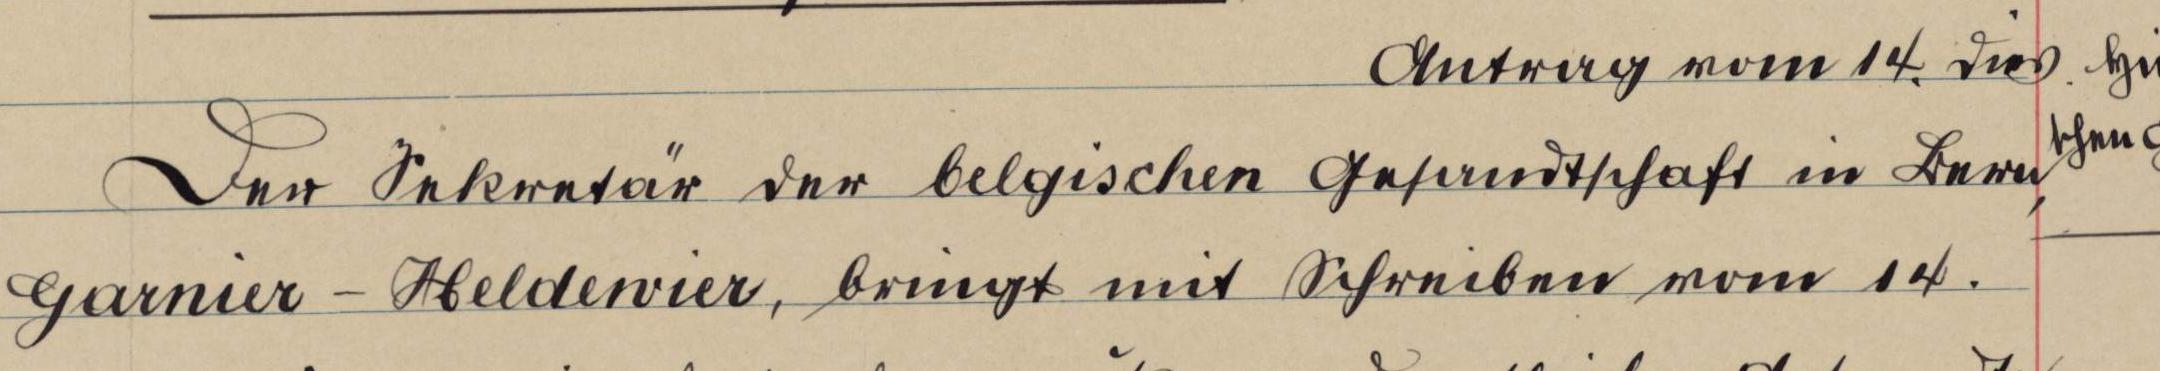 Antrag vom 14. dies.
Der Sekretär der belgischen Gesandtschaft in Bern,
Garnier-Heldewier, bringt mit Schreiben vom 14.